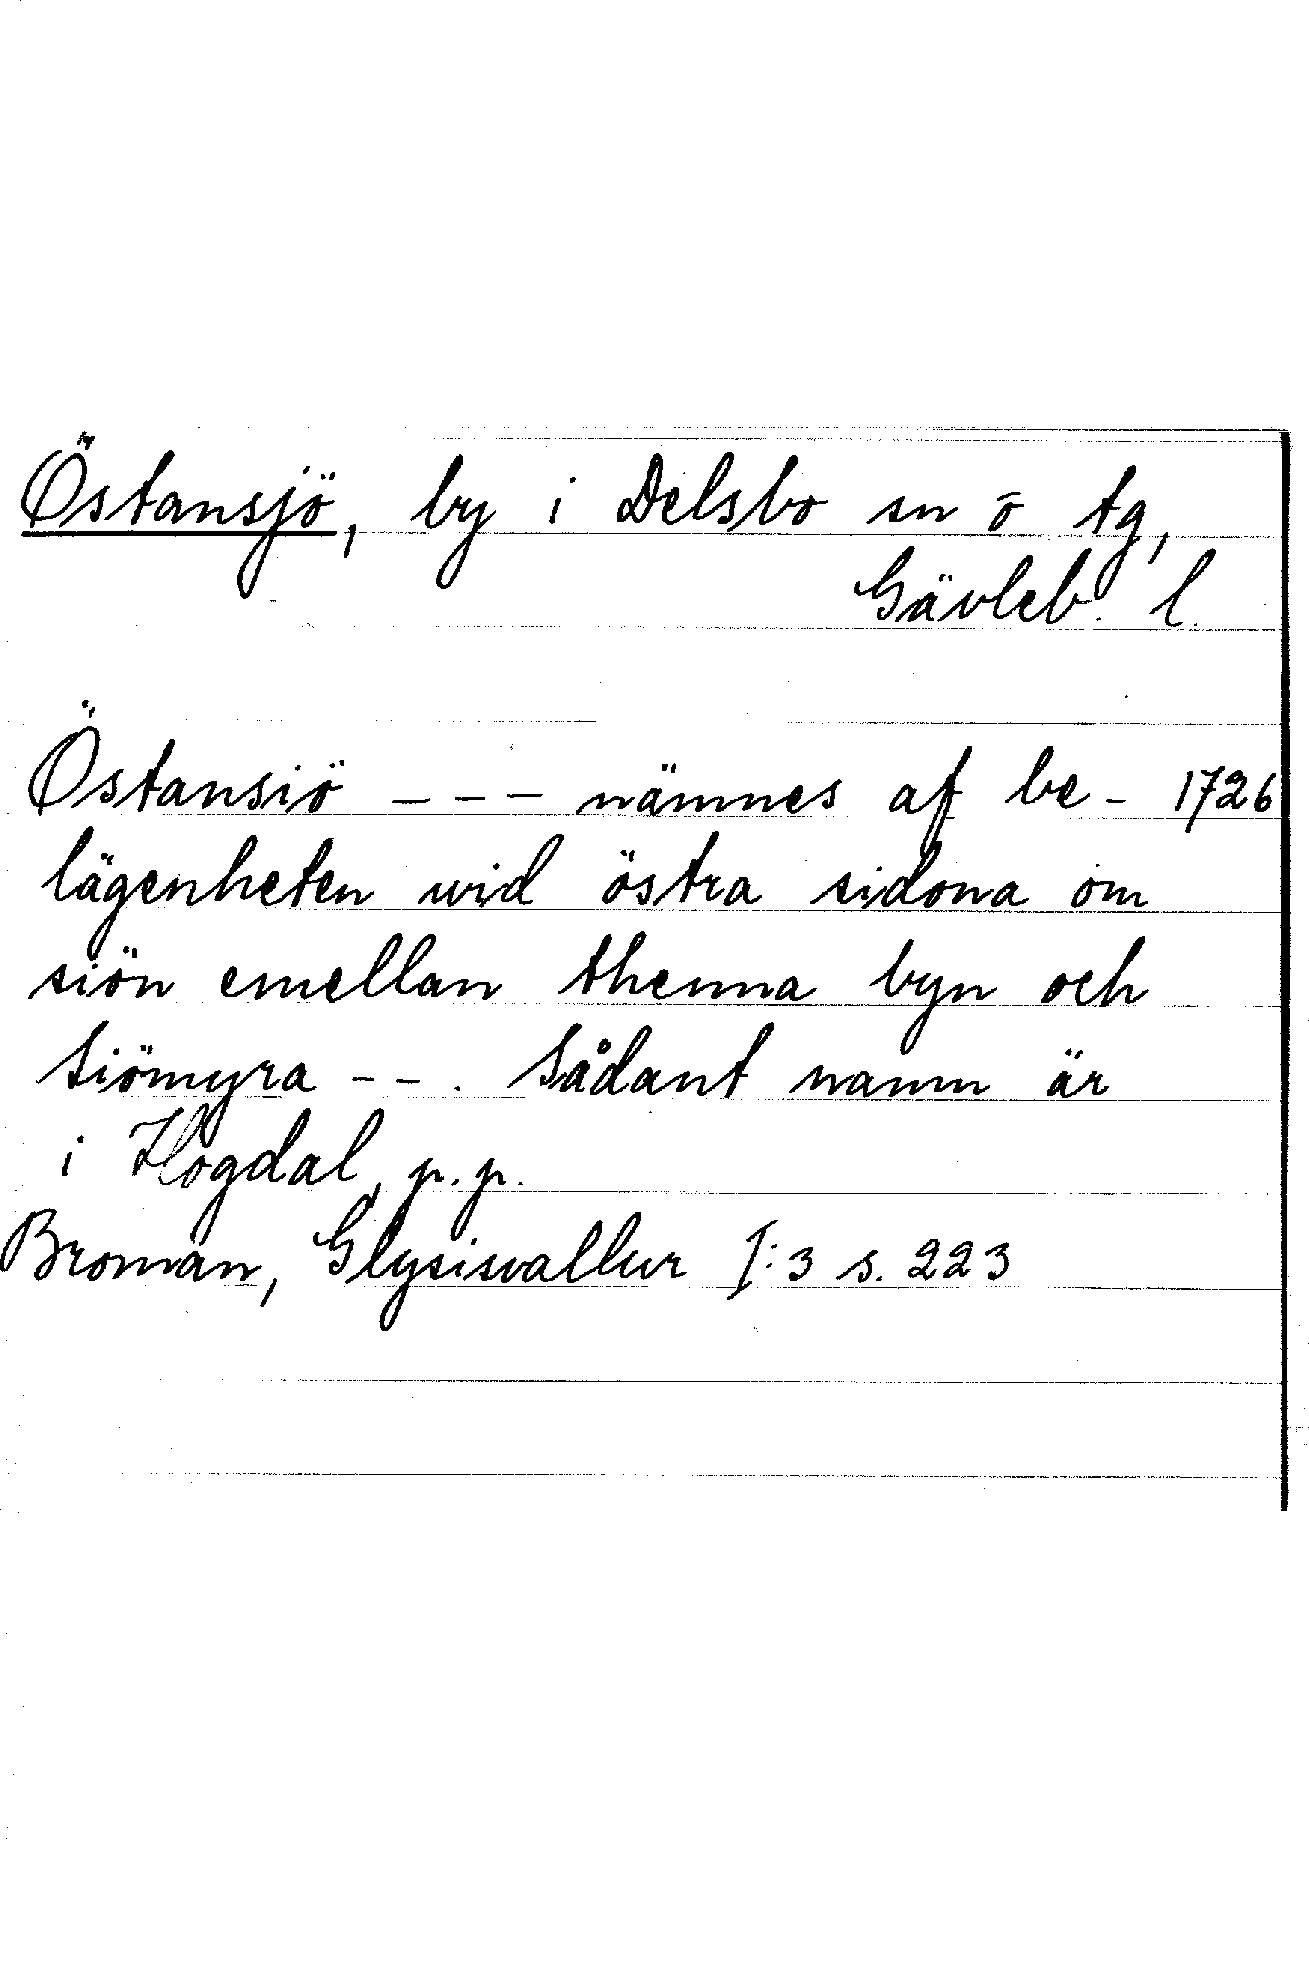 Östansjö, by i Delsbo sn o tg,
Gävleb. l.
Östansiö --- nämnes af be- 1726
lägenheten wid östra sidona om
siön emellan thenna byn och
Siömyra --. Sådant namn är
i Hogdal, p.p.
Broman, Glysisvallur I:3 s. 223